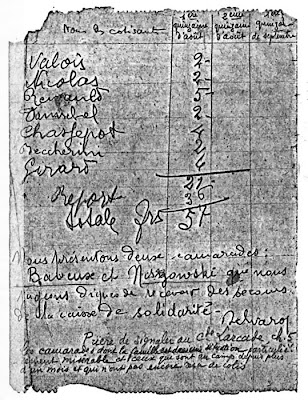 Noms des cotisants 1ère quinzaine d'août 2ème quinzaine d'août 1ère quinzaine de septembre
Valois 2
Nicolas 2
5
2
Chassepot 4
Zeccherini 2
Girard 4
21
Report 36
Totale Frs 57
Nous présentons deux camarades:
et que nous
jugeons dignes de recevoir des secours
de la caisse de solidarité -
Delvaro
Prière de signaler au Cde Larcade ch. 5
les camarades dont la famille est dans une situation particuliè-
rement misérable et ceux qui sont au camp depuis plus
d'un mois et qui n'ont pas encore reçu de colis